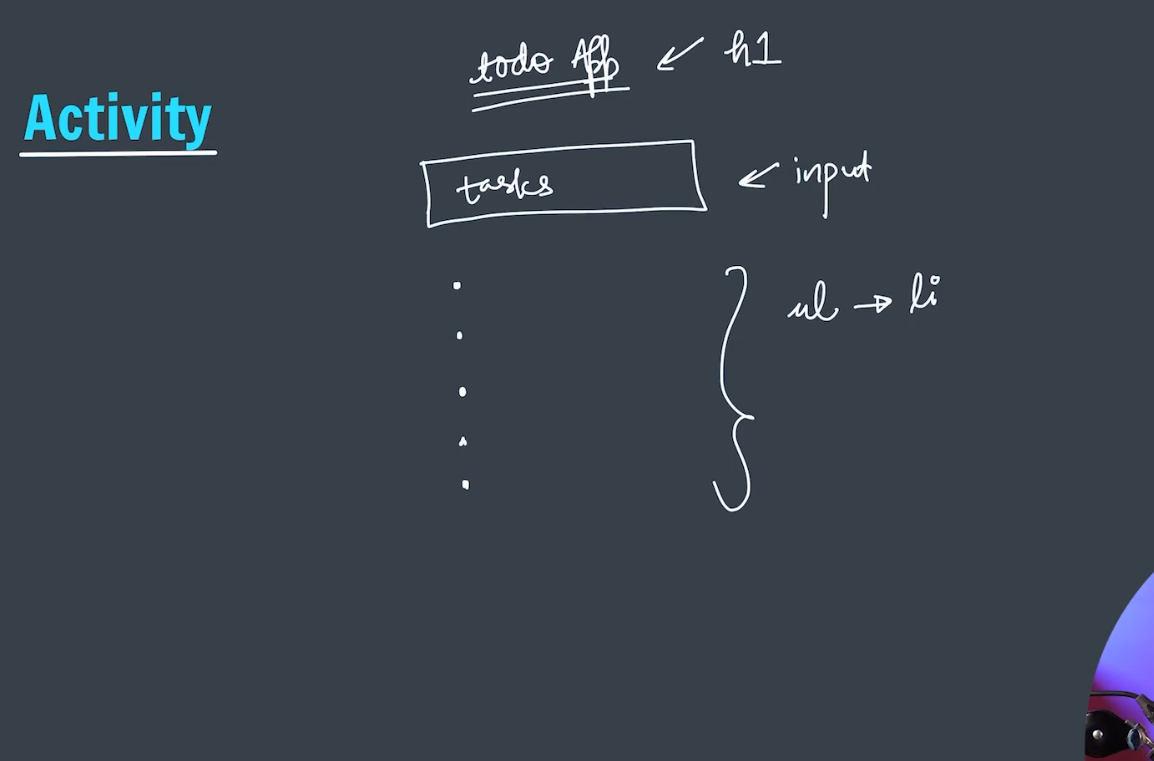 Activity
todo App h1
tasks input
ul → li